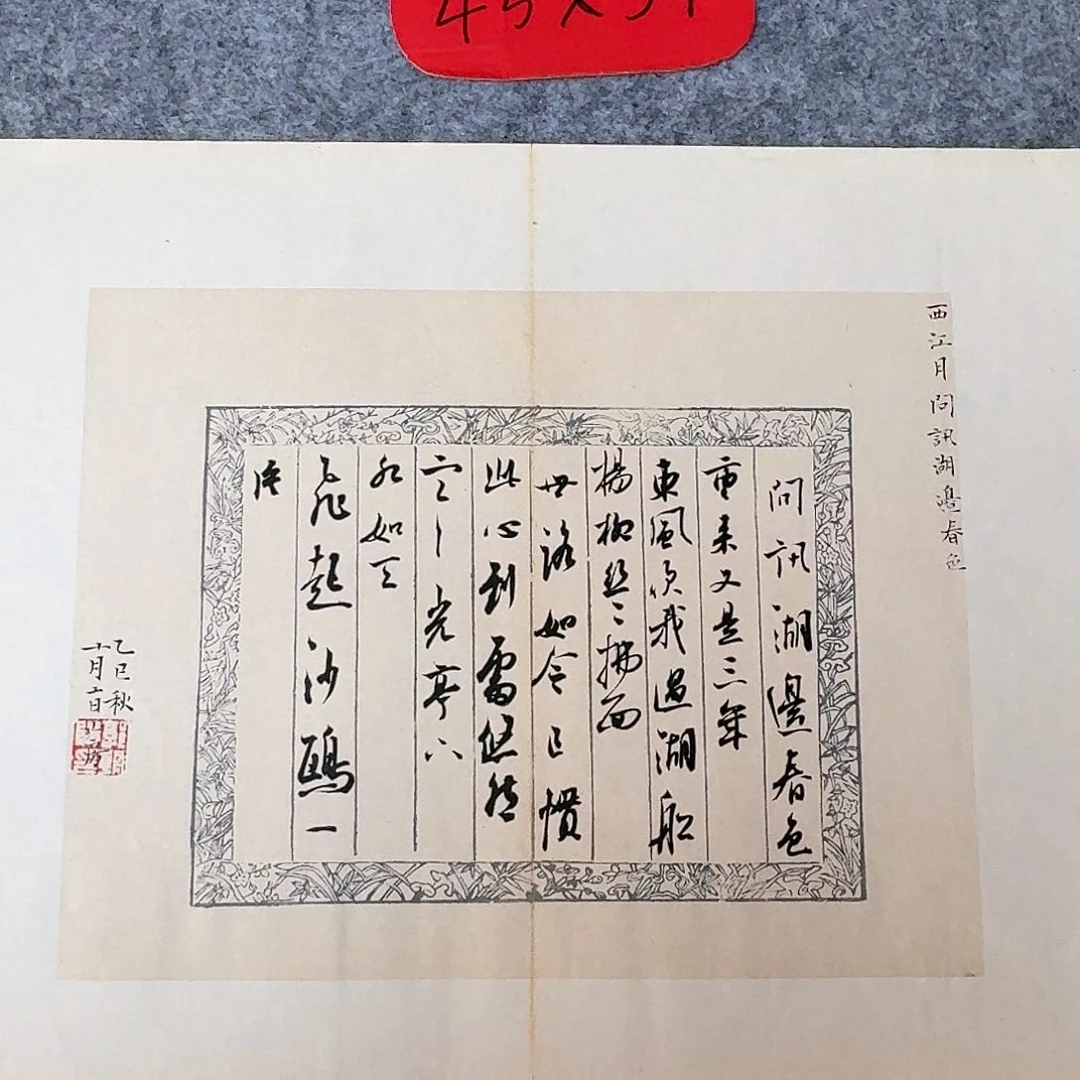 西江月問訊湖邊春色
問訊湖邊春色
重来又是三年
東風吹我過湖船
楊柳丝〻拂面
世路如今已慣
此心到處悠然
寒光亭下
水如天
飛起沙鷗一
片
乙巳秋
十月